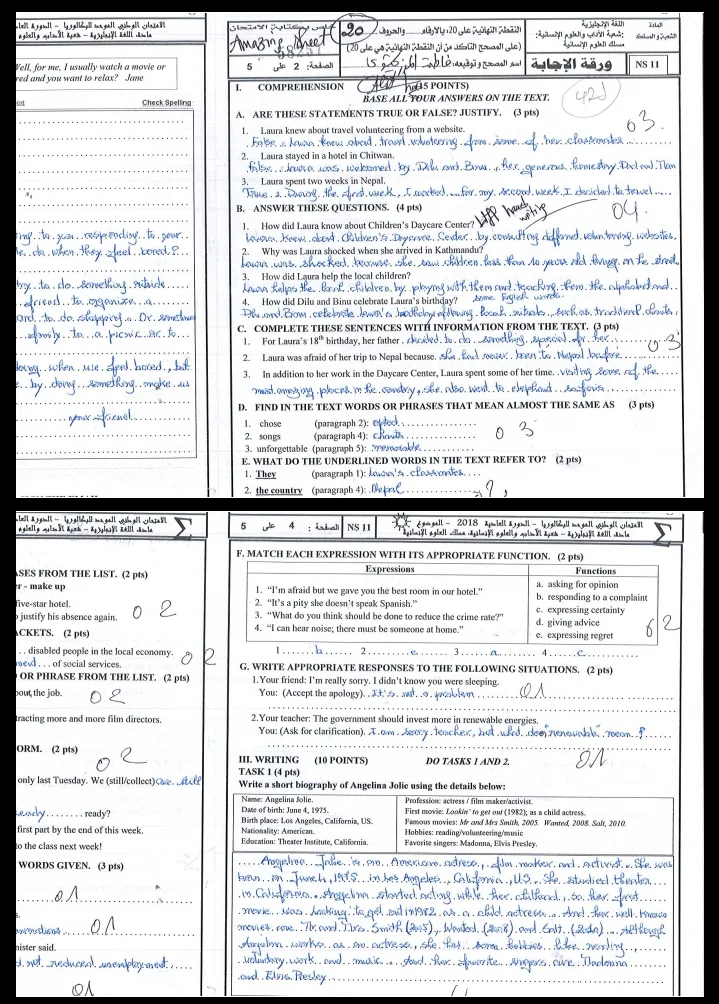 الامتحان الوطني الموحد للبكالوريا - الدورة العا
مادة: اللغة الإنجليزية - شعبة الآداب والعلوم
Well, for me, I usually watch a movie or
red and you want to relax?   Jane
Check Spelling
ing to you responding to your
do when they feel bored?
try to do something outside
friend to organize a
and to do shopping. Or sometimes
family to a picnic or to
doing when we feel bored, but
by doing something make us
your friend
خاص بكتابة الامتحان
Amazing sheet
20
النقطة النهائية على 20: بالأرقام.....والحروف
(على المصحح التأكد من أن النقطة النهائية هي على 20)
المادة
الشعبة والمسلك
اللغة الإنجليزية
شعبة الآداب والعلوم الإنسانية:
مسلك العلوم الإنسانية
5   الصفحة: 2 على
اسم المصحح وتوقيعه:
ورقة الإجابة
NS 11
I. COMPREHENSION (15 POINTS)
BASE ALL YOUR ANSWERS ON THE TEXT.
A. ARE THESE STATEMENTS TRUE OR FALSE? JUSTIFY. (3 pts)
03
1. Laura knew about travel volunteering from a website.
False. Laura knew about travel volunteering from some of her classmates
2. Laura stayed in a hotel in Chitwan.
False. Laura was welcomed by Dilu and Binu, her generous homestay Dad and Mom
3. Laura spent two weeks in Nepal.
True. During the first week, I worked.... For my second week, I decided to travel....
B. ANSWER THESE QUESTIONS. (4 pts)
04
1. How did Laura know about Children's Daycare Center?
Laura knew about Children's Daycare Center by consulting different volunteering websites.
2. Why was Laura shocked when she arrived in Katmandu?
Laura was shocked because she saw children less than 10 years old living on the street
3. How did Laura help the local children?
Laura helps the local children by playing with them and teaching them the alphabet and
some English words.
4. How did Dilu and Binu celebrate Laura's birthday?
Dilu and Binu celebrate Laura's birthday following local rituals, such as traditional chants,
C. COMPLETE THESE SENTENCES WITH INFORMATION FROM THE TEXT. (3 pts)
1. For Laura's 18th birthday, her father decided to do something special for her
03
2. Laura was afraid of her trip to Nepal because she had never been to Nepal before
3. In addition to her work in the Daycare Center, Laura spent some of her time visiting some of the
most amazing places in the country, she also went to elephant safaris.
D. FIND IN THE TEXT WORDS OR PHRASES THAT MEAN ALMOST THE SAME AS (3 pts)
1. chose (paragraph 2): opted
2. songs (paragraph 4): chants
03
3. unforgettable (paragraph 5): memorable
E. WHAT DO THE UNDERLINED WORDS IN THE TEXT REFER TO? (2 pts)
1. They (paragraph 1): Laura's classmates
2. the country (paragraph 4): Nepal
الامتحان الوطني الموحد للبكالوريا - الدورة العا
مادة: اللغة الإنجليزية - شعبة الآداب والعلوم
ASES FROM THE LIST. (2 pts)
r - make up
five-star hotel.
o justify his absence again.
02
ACKETS. (2 pts)
disabled people in the local economy.
02
of social services.
OR PHRASE FROM THE LIST. (2 pts)
out, the job.
02
tracting more and more film directors.
ORM. (2 pts)
02
only last Tuesday. We (still/collect) are still
ready?
first part by the end of this week.
to the class next week!
WORDS GIVEN. (3 pts)
01
01
nister said.
not reduced unemployment
01
5   الصفحة: 4 على
NS 11
الامتحان الوطني الموحد للبكالوريا - الدورة العادية 2018 - الموضوع
مادة: اللغة الإنجليزية - شعبة الآداب والعلوم الإنسانية، مسلك العلوم الإنسانية
F. MATCH EACH EXPRESSION WITH ITS APPROPRIATE FUNCTION. (2 pts)
Expressions   Functions
1. "I'm afraid but we gave you the best room in our hotel."
2. "It's a pity she doesn't speak Spanish."
3. "What do you think should be done to reduce the crime rate?"
4. "I can hear noise; there must be someone at home."
a. asking for opinion
b. responding to a complaint
c. expressing certainty
d. giving advice
e. expressing regret
1 b 2 e 3 a 4 c
02
G. WRITE APPROPRIATE RESPONSES TO THE FOLLOWING SITUATIONS. (2 pts)
1.Your friend: I'm really sorry. I didn't know you were sleeping.
You: (Accept the apology). It's not a problem
01
2.Your teacher: The government should invest more in renewable energies.
You: (Ask for clarification). I am sorry teacher, but what does "renewable" mean?
01
III. WRITING (10 POINTS)   DO TASKS 1 AND 2.
TASK 1 (4 pts)
Write a short biography of Angelina Jolie using the details below:
Name: Angelina Jolie.
Date of birth: June 4, 1975.
Birth place: Los Angeles, California, US.
Nationality: American.
Education: Theater Institute, California.
Profession: actress / film maker/activist.
First movie: Lookin' to get out (1982); as a child actress.
Famous movies: Mr and Mrs Smith, 2005. Wanted, 2008. Salt, 2010.
Hobbies: reading/volunteering/music
Favorite singers: Madonna, Elvis Presley.
Angelina Jolie is an American actress, film maker and activist. She was
born on June 4, 1975 in Los Angeles, California, U.S. She studied theater
in California. Angelina started acting while her childhood, so her first
movie was Looking to get out in 1982 as a child actress. And her well-known
movies are Mr and Mrs. Smith (2005), Wanted (2008) and Salt (2010). Although
Angelina works as an actress, she has some hobbies like reading,
voluntary work and music. And her favorite singers are Madonna
and Elvis Presley.